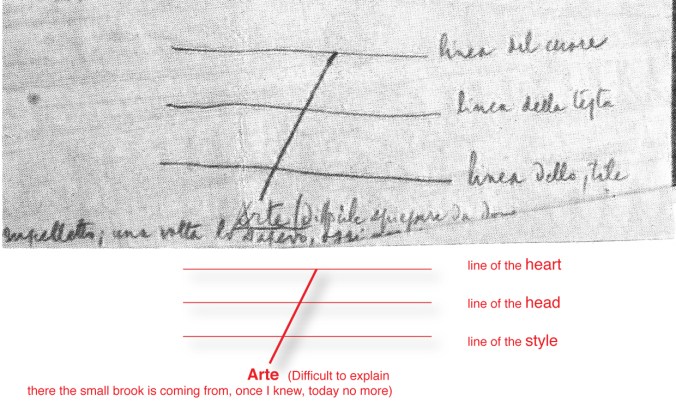 linea del cuore
linea della testa
linea dello stile
Arte (Difficile spiegare da dove
una volta lo sapevo, oggi
line of the heart
line of the head
line of the style
Arte (Difficult to explain
there the small brook is coming from, once I knew, today no more)